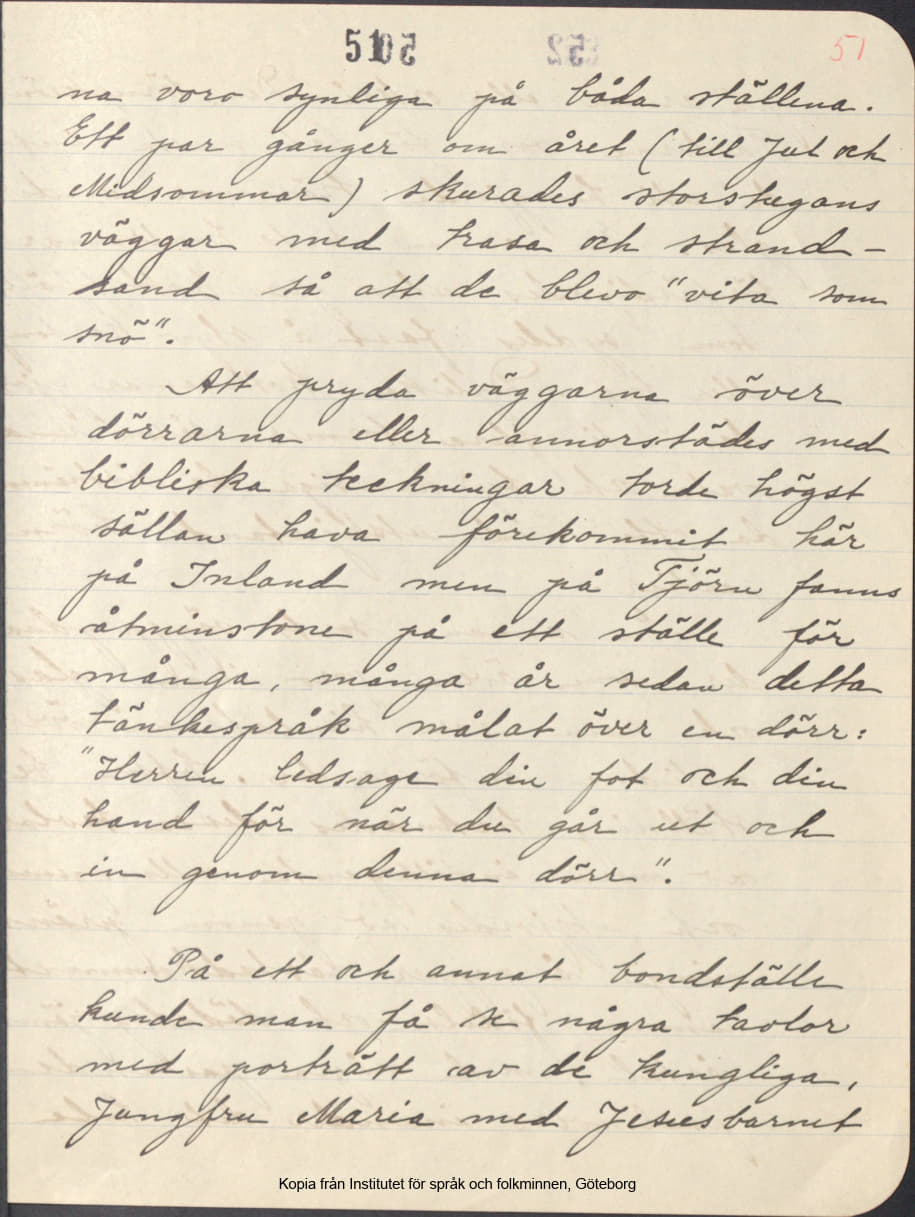 5105
51
na voro synliga på båda ställena.
Ett par gånger om året (till Jul och
Midsommar) skurades storstugans
väggar med trasa och strand-
sand så att de blevo "vita som
snö".
Att pryda väggarna över
dörrarna eller annorstädes med
bibliska teckningar torde högst
sällan hava förekommit här
på Inland men på Tjörn fanns
åtminstone på ett ställe för
många, många år sedan detta
tänkespråk målat över en dörr:
"Herren ledsage din fot och din
hand för när du går ut och
in genom denna dörr".
På ett och annat bondställe
kunde man få se några tavlor
med porträtt av de kungliga,
Jungfru Maria med Jesusbarnet
Kopia från Institutet för språk och folkminnen, Göteborg